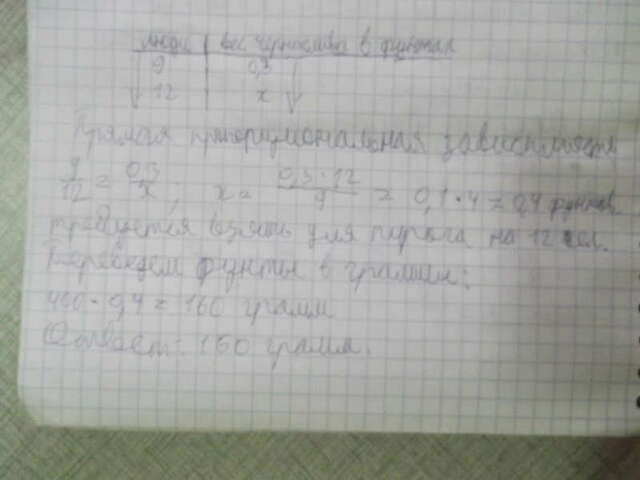 люди вес чернослива в фунтах
9 0,3
12 x
Прямая пропорциональная зависимость
9/12 = 0,3/x ; x = 0,3·12/9 = 0,1·4 = 0,4 фунтов
требуется взять для пирога на 12 чел.
Переведем фунты в граммы:
400·0,4 = 160 грамм
Ответ: 160 грамм.